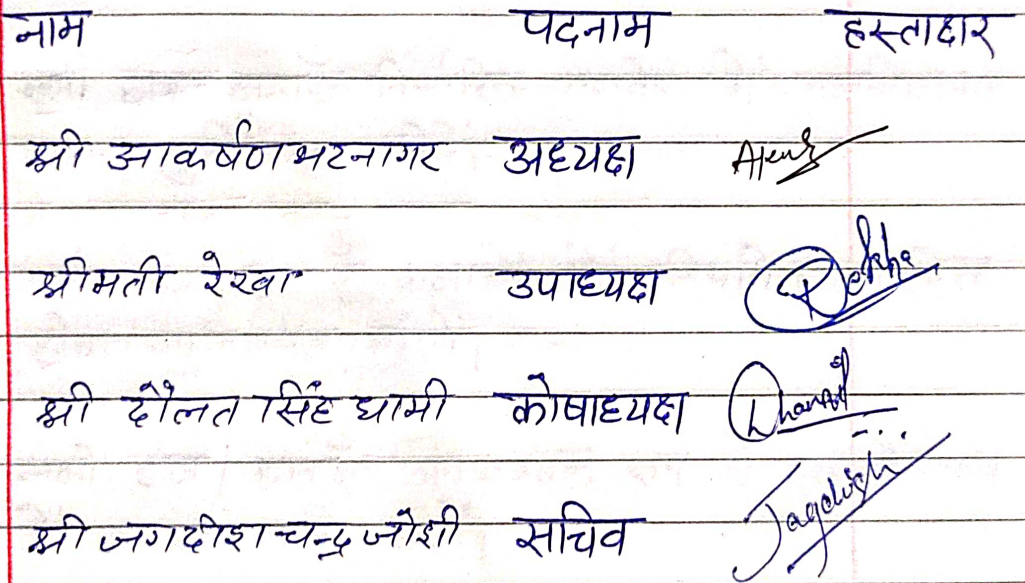 नाम पदनाम हस्ताक्षर
श्री आकर्षण भटनागर अध्यक्ष
श्रीमती रेखा उपाध्यक्ष Rekha
श्री दौलत सिंह धामी कोषाध्यक्ष Dhami
श्री जगदीश चन्द्र जोशी सचिव Jagdish